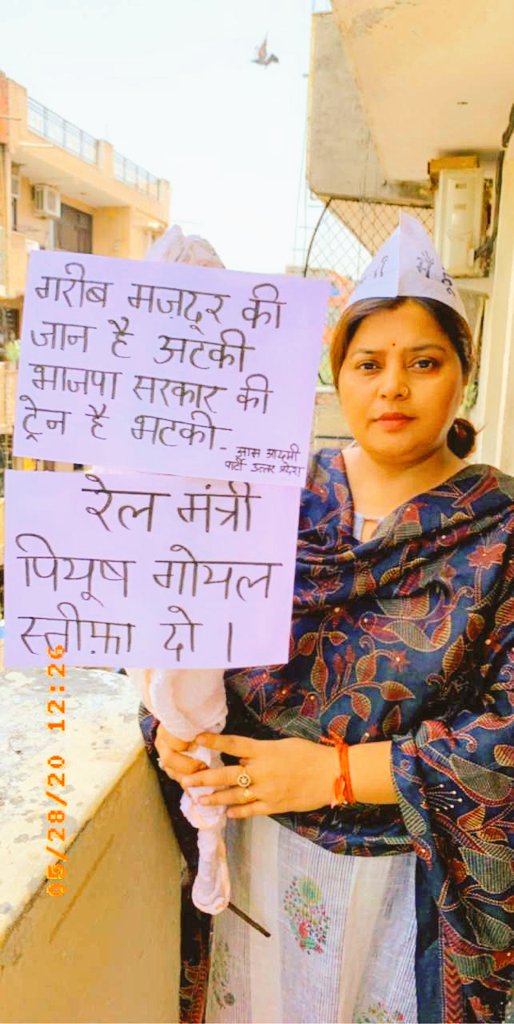 गरीब मज़दूर की
जान है अटकी
भाजपा सरकार की
ट्रेन है भटकी -
आम आदमी
पार्टी उत्तर प्रदेश
रेल मंत्री
पियूष गोयल
स्तीफ़ा दो ।
05/28/20 12:26